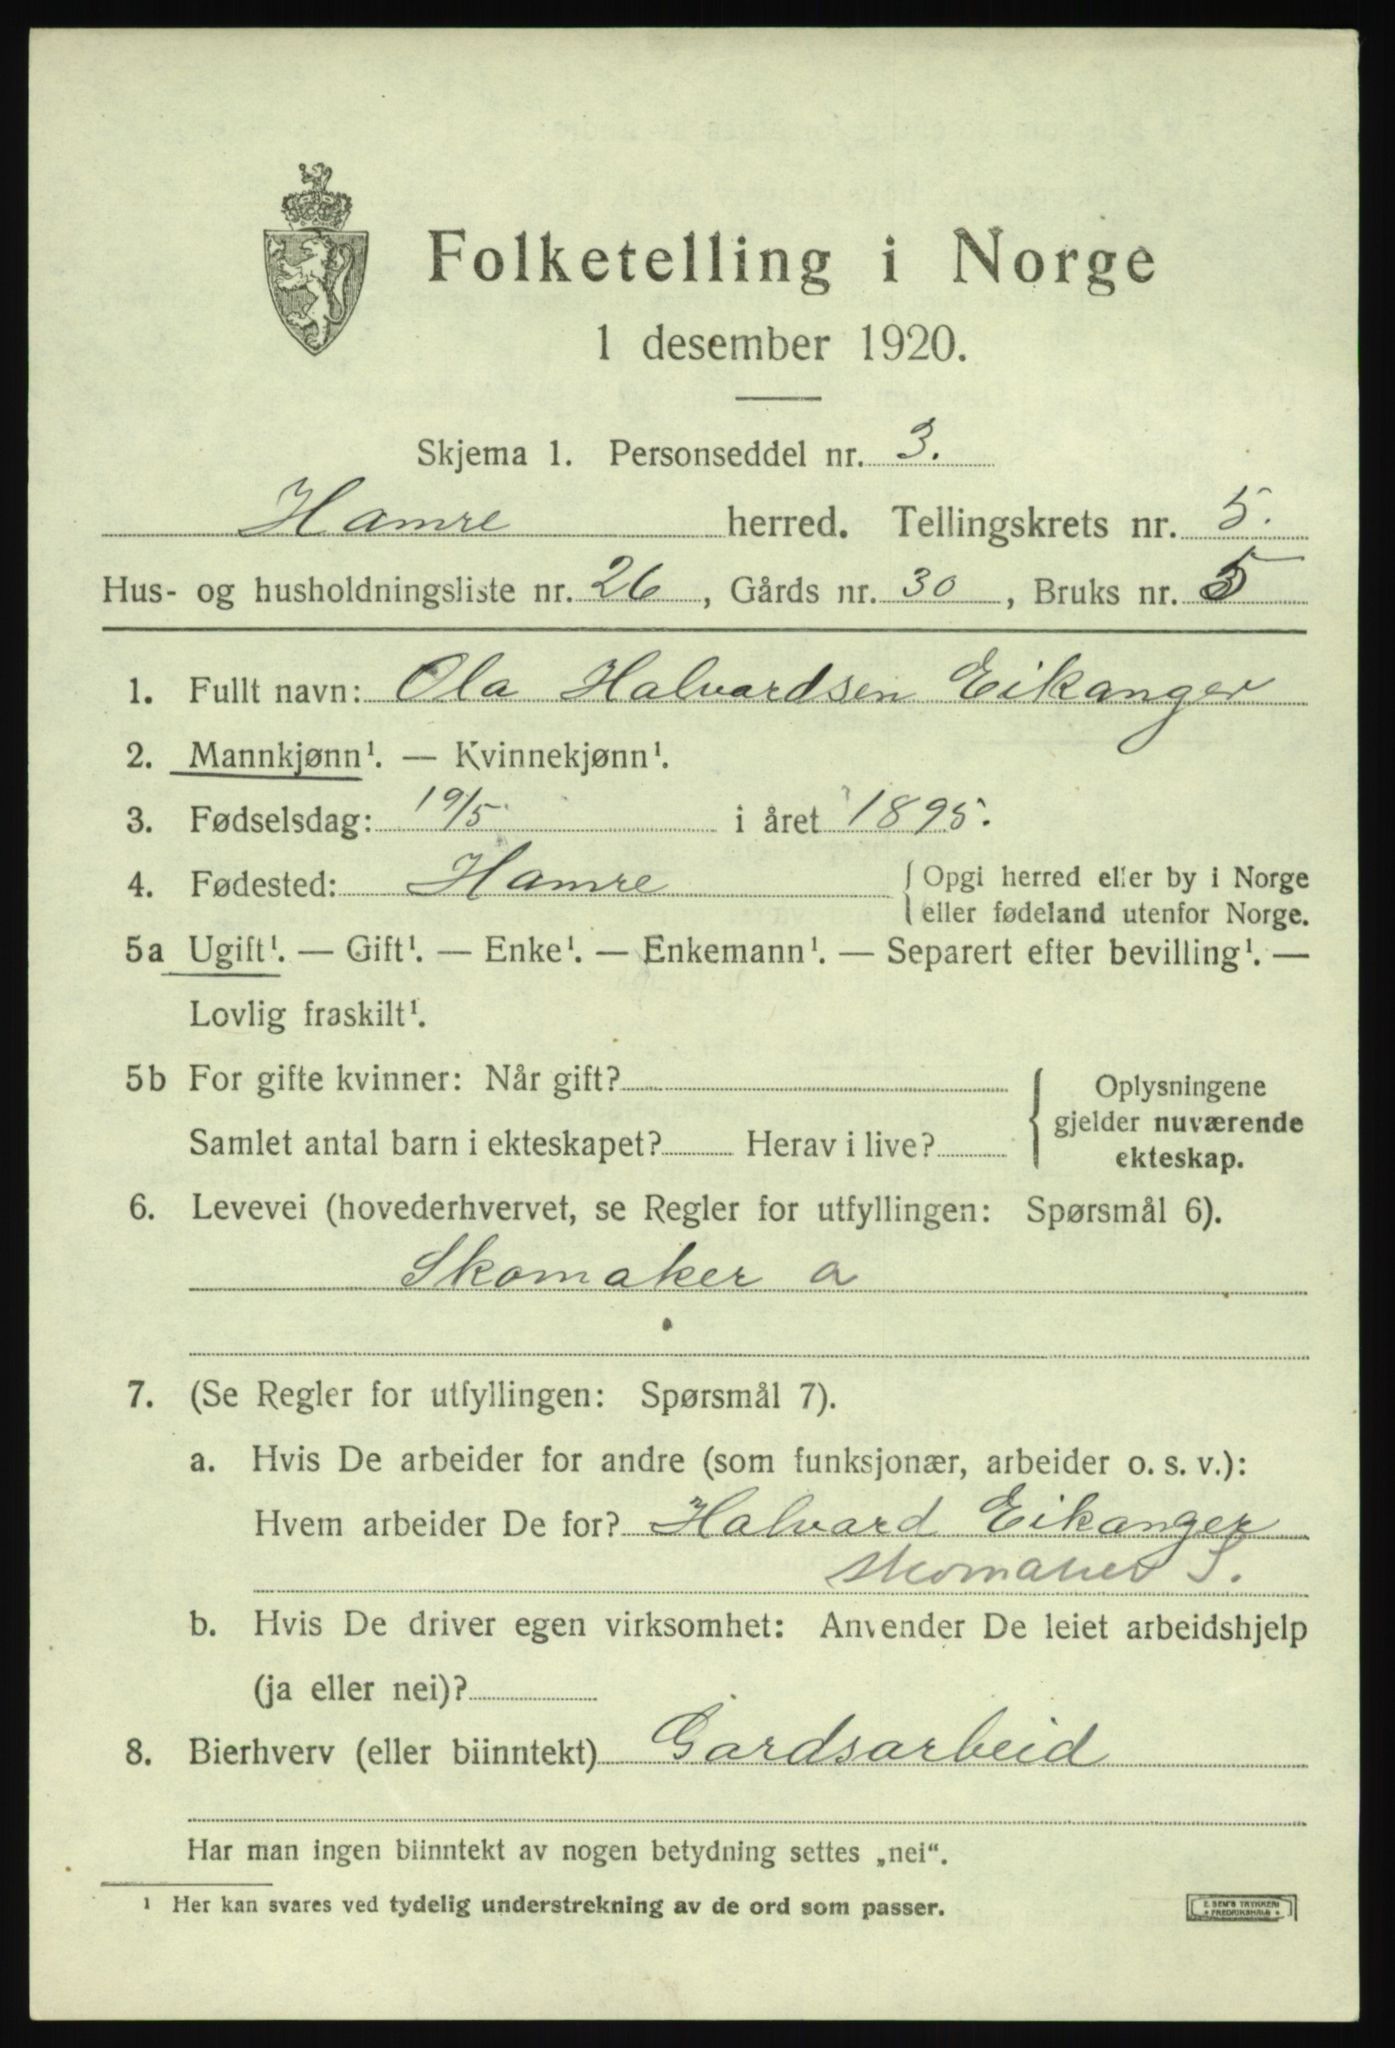 Folketelling i Norge
1 desember 1920.
Skjema 1. Personseddel nr. 3.
Hamre herred. Tellingskrets nr. 5.
Hus- og husholdningsliste nr. 26, Gårds nr. 30, Bruks nr. 5
1. Fullt navn: Ola Halvardsen Eikanger
2. Mannkjønn¹. — Kvinnekjønn¹.
3. Fødselsdag: 19/5 i året 1895.
4. Fødested: Hamre { Opgi herred eller by i Norge
eller fødeland utenfor Norge.
5a Ugift¹. — Gift¹. — Enke¹. — Enkemann¹. — Separert efter bevilling¹. —
Lovlig fraskilt¹.
5b For gifte kvinner: Når gift?
Samlet antal barn i ekteskapet? Herav i live?
{ Oplysningene
gjelder nuværende
ekteskap.
6. Levevei (hovederhvervet, se Regler for utfyllingen: Spørsmål 6).
Skomaker a
7. (Se Regler for utfyllingen: Spørsmål 7).
a. Hvis De arbeider for andre (som funksjonær, arbeider o. s. v.):
Hvem arbeider De for? Halvard Eikanger
skomaker S.
b. Hvis De driver egen virksomhet: Anvender De leiet arbeidshjelp
(ja eller nei)?
8. Bierhverv (eller biinntekt) Gårdsarbeid
Har man ingen biinntekt av nogen betydning settes „nei“.
¹ Her kan svares ved tydelig understrekning av de ord som passer.
E. SEM'S TRYKKERI
* FREDRIKSHALD *